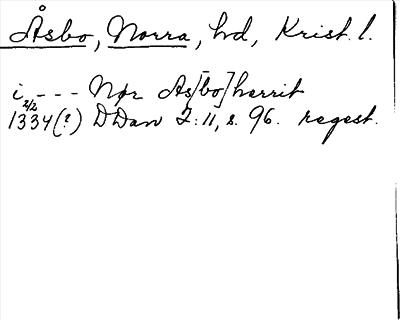 Åsbo, Norra, hd, Krist. l.
i --- Nør As[bo]herrit
2/2
1334(?) DDan 2:11, s. 96. regest.